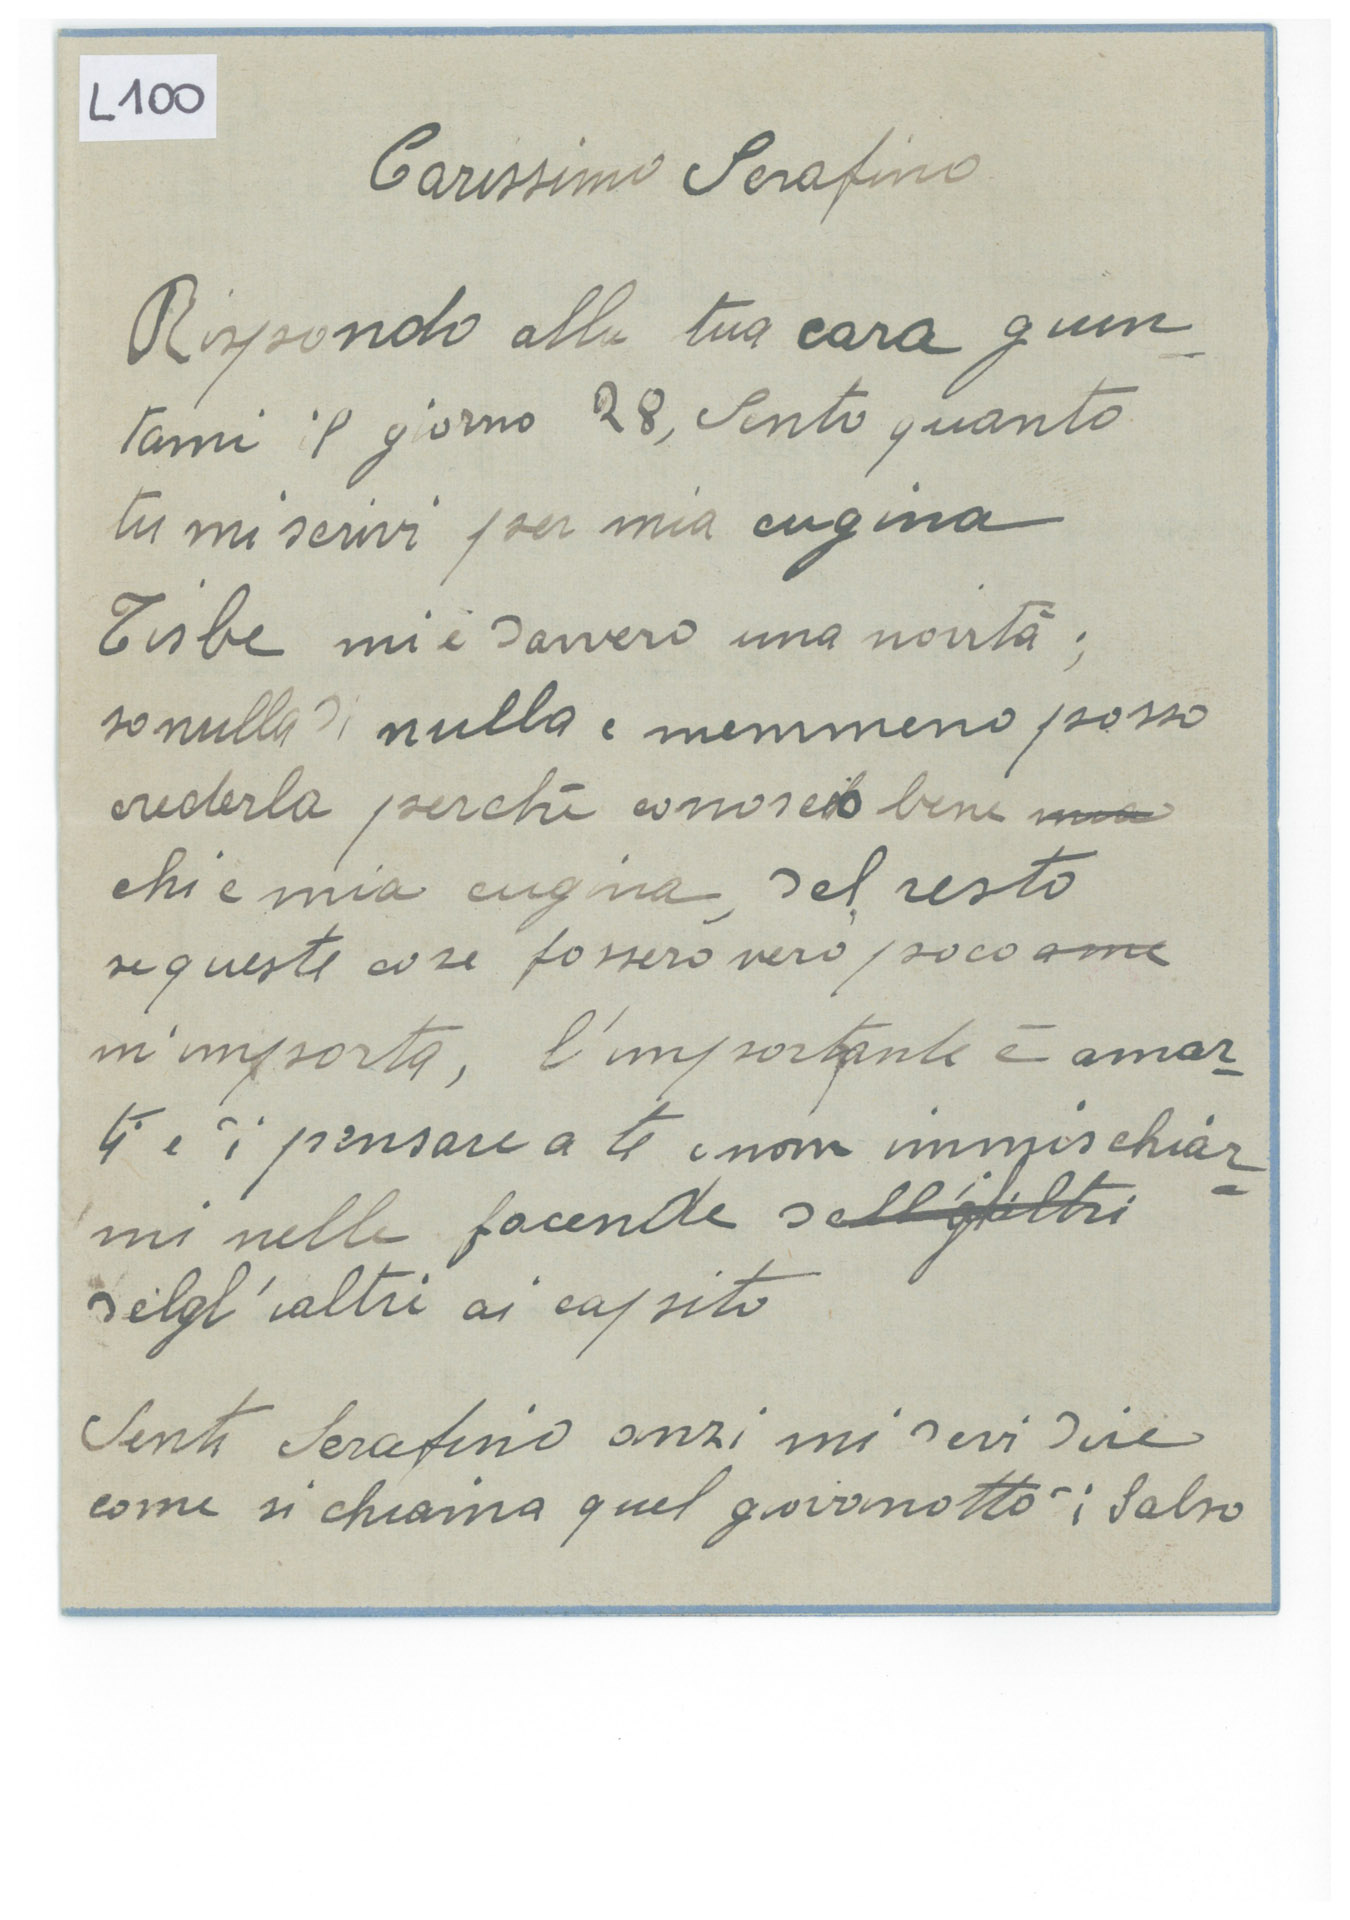 L100
Carissimo Serafino
Rispondo alla tua cara guin-
tami il giorno 28, Sento quanto
tu mi scrivi per mia cugina
Tisbe mi è davvero una novità;
so nulla di nulla e memmeno posso
crederla perchè conoscio bene
chi e mia cugina, del resto
se queste cose fossero vero poco a me
m'importa, l'importante è amar-
ti e di pensare a te e non immischiar-
mi nelle facende dell'gl'altri
delgl'altri ai capito
Senti Serafino anzi mi devi dire
come si chiama quel giovanotto di Salso